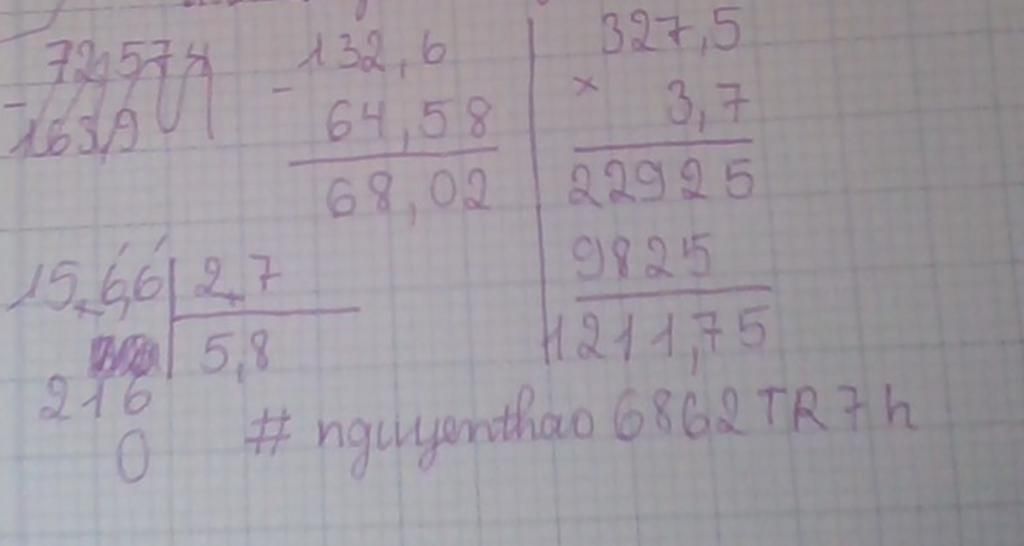 72,574
-
163,9
132,6
-
64,58
68,02
327,5
× 3,7
22925
9825
1211,75
15,6,6 2,7
5,8
216
0
# nguyenthao6862TR7h